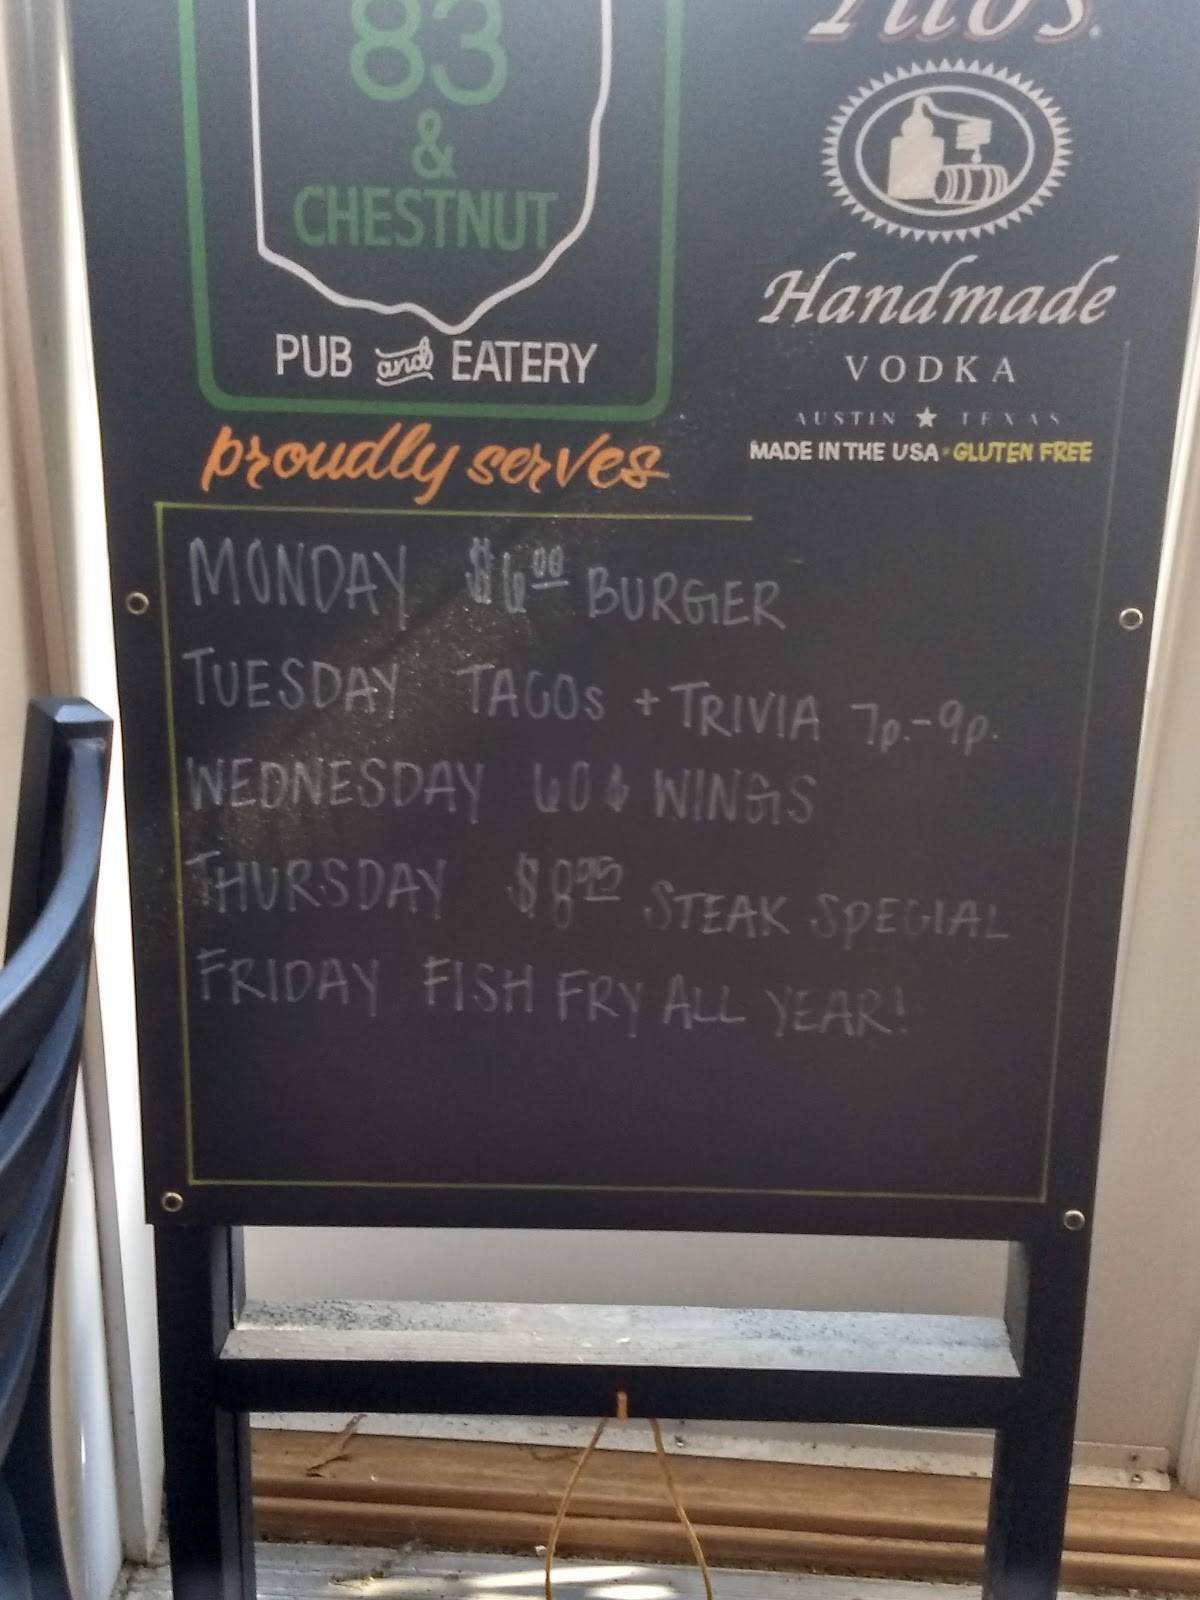 83
&
CHESTNUT
PUB and EATERY
proudly serves
Tito's®
Handmade
VODKA
AUSTIN ★ TEXAS
MADE IN THE USA • GLUTEN FREE
MONDAY $6.00 BURGER
TUESDAY TACOS + TRIVIA 7p.-9p.
WEDNESDAY 60¢ WINGS
THURSDAY $8.95 STEAK SPECIAL
FRIDAY FISH FRY ALL YEAR!